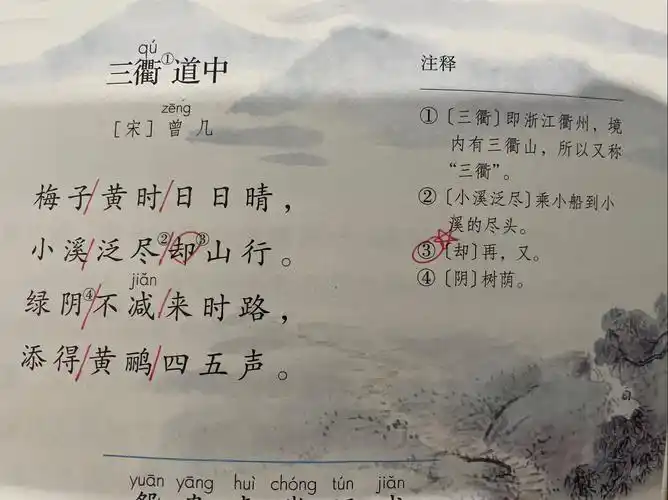 qú
三衢①道中
zēng
［宋］曾 几
梅子/黄时/日日晴，
小溪/泛尽②/却③山行。
jiǎn
绿阴④/不减/来时路，
添得/黄鹂/四五声。
注释
①〔三衢〕即浙江衢州，境
内有三衢山，所以又称
“三衢”。
②〔小溪泛尽〕乘小船到小
溪的尽头。
③〔却〕再，又。
④〔阴〕树荫。
yuān yāng huì chóng tún jiǎn